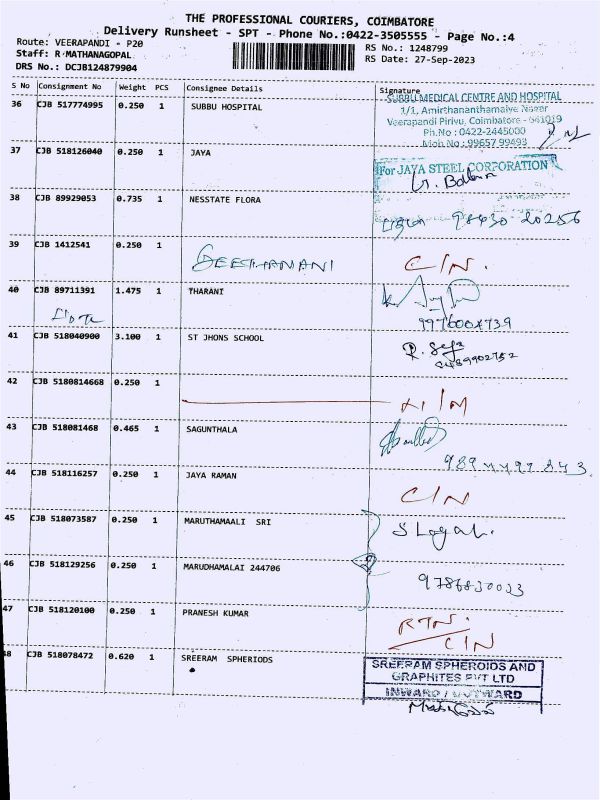 THE PROFESSIONAL COURIERS, COIMBATORE
Delivery Runsheet - SPT - Phone No.:0422-3505555 - Page No.:4
Route: VEERAPANDI - P20
RS No.: 1248799
Staff: R MATHANAGOPAL
RS Date: 27-Sep-2023
DRS No.: DCJB124879904
S No Consignment No Weight PCS Consignee Details Signature
36 CJB 517774995 0.250 1 SUBBU HOSPITAL
SUBBU MEDICAL CENTRE AND HOSPITAL
1/1, Amirthananthamalye Nagar
Veerapandi Pirivu, Coimbatore - 641019
Ph.No : 0422-2445000
Mob No : 99657 99493
37 CJB 518126040 0.250 1 JAYA
For JAYA STEEL CORPORATION
38 CJB 89929053 0.735 1 NESSTATE FLORA
98430 20256
39 CJB 1412541 0.250 1 GEETHANANI C/N.
40 CJB 89711391 1.475 1 THARANI
41 CJB 518040900 3.100 1 ST JHONS SCHOOL
42 CJB 5180814668 0.250 1
43 CJB 518081468 0.465 1 SAGUNTHALA
44 CJB 518116257 0.250 1 JAYA RAMAN
C/N
45 CJB 518073587 0.250 1 MARUTHAMAALI SRI
S Logah.
46 CJB 518129256 0.250 1 MARUDHAMALAI 244706
47 CJB 518120100 0.250 1 PRANESH KUMAR
RTN.
C/N
48 CJB 518078472 0.620 1 SREERAM SPHERIODS
SREERAM SPHEROIDS AND
GRAPHITES PVT LTD
INWARD / OUTWARD